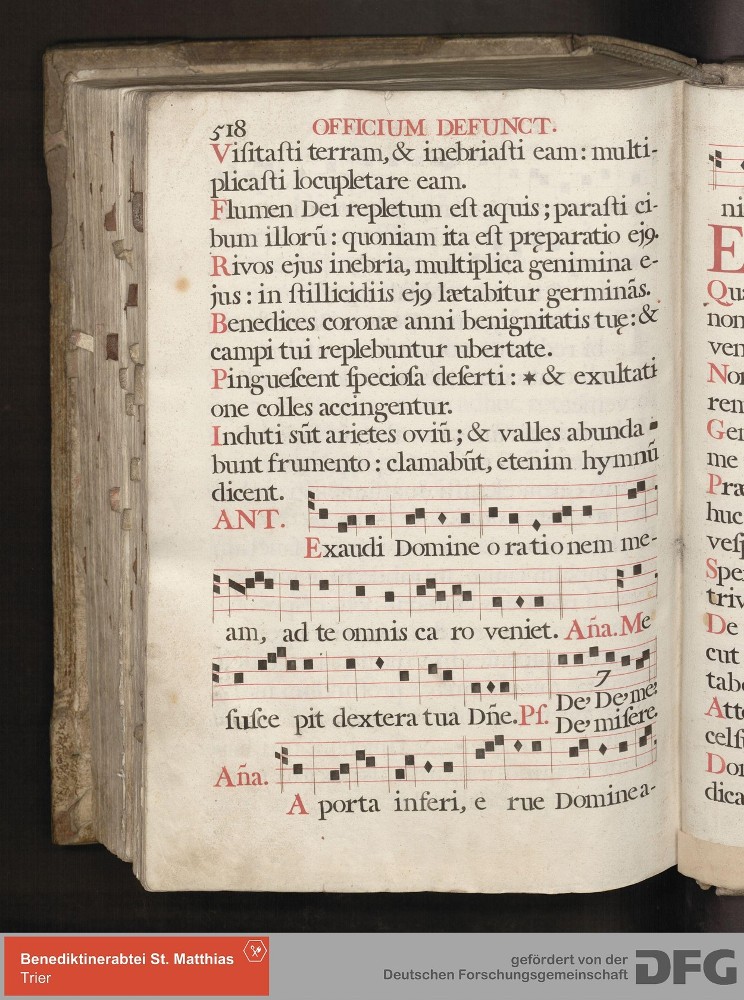 518 OFFICIUM DEFUNCT.
Viſitaſti terram, & inebriaſti eam: multi-
plicaſti locupletare eam.
Flumen Dei repletum eſt aquis; paraſti ci-
bum illorũ: quoniam ita eſt pręparatio ejꝰ.
Rivos ejus inebria, multiplica genimina e-
jus: in ſtillicidiis ejꝰ lætabitur germinãs.
Benedices coronæ anni benignitatis tuę: &
campi tui replebuntur ubertate.
Pingueſcent ſpecioſa deſerti: * & exultati
one colles accingentur.
Induti sũt arietes oviũ; & valles abunda-
bunt frumento: clamabũt, etenim hymnũ
dicent.
ANT.
Exaudi Domine o ra tio nem me-
am, ad te omnis ca ro veniet. Aña. Me
ſuſce pit dextera tua Dñe. Pſ. De, De, me,
7
De, miſere.
Aña.
A porta inferi, e rue Domine a-
ni
E
Qua
non
ven
Non
rem
Gen
me
Præ
huc
veſp
Spe
triv
De
cut
tab
Atte
celſi
Don
dica
Benediktinerabtei St. Matthias
Trier
gefördert von der
Deutschen Forschungsgemeinschaft
DFG